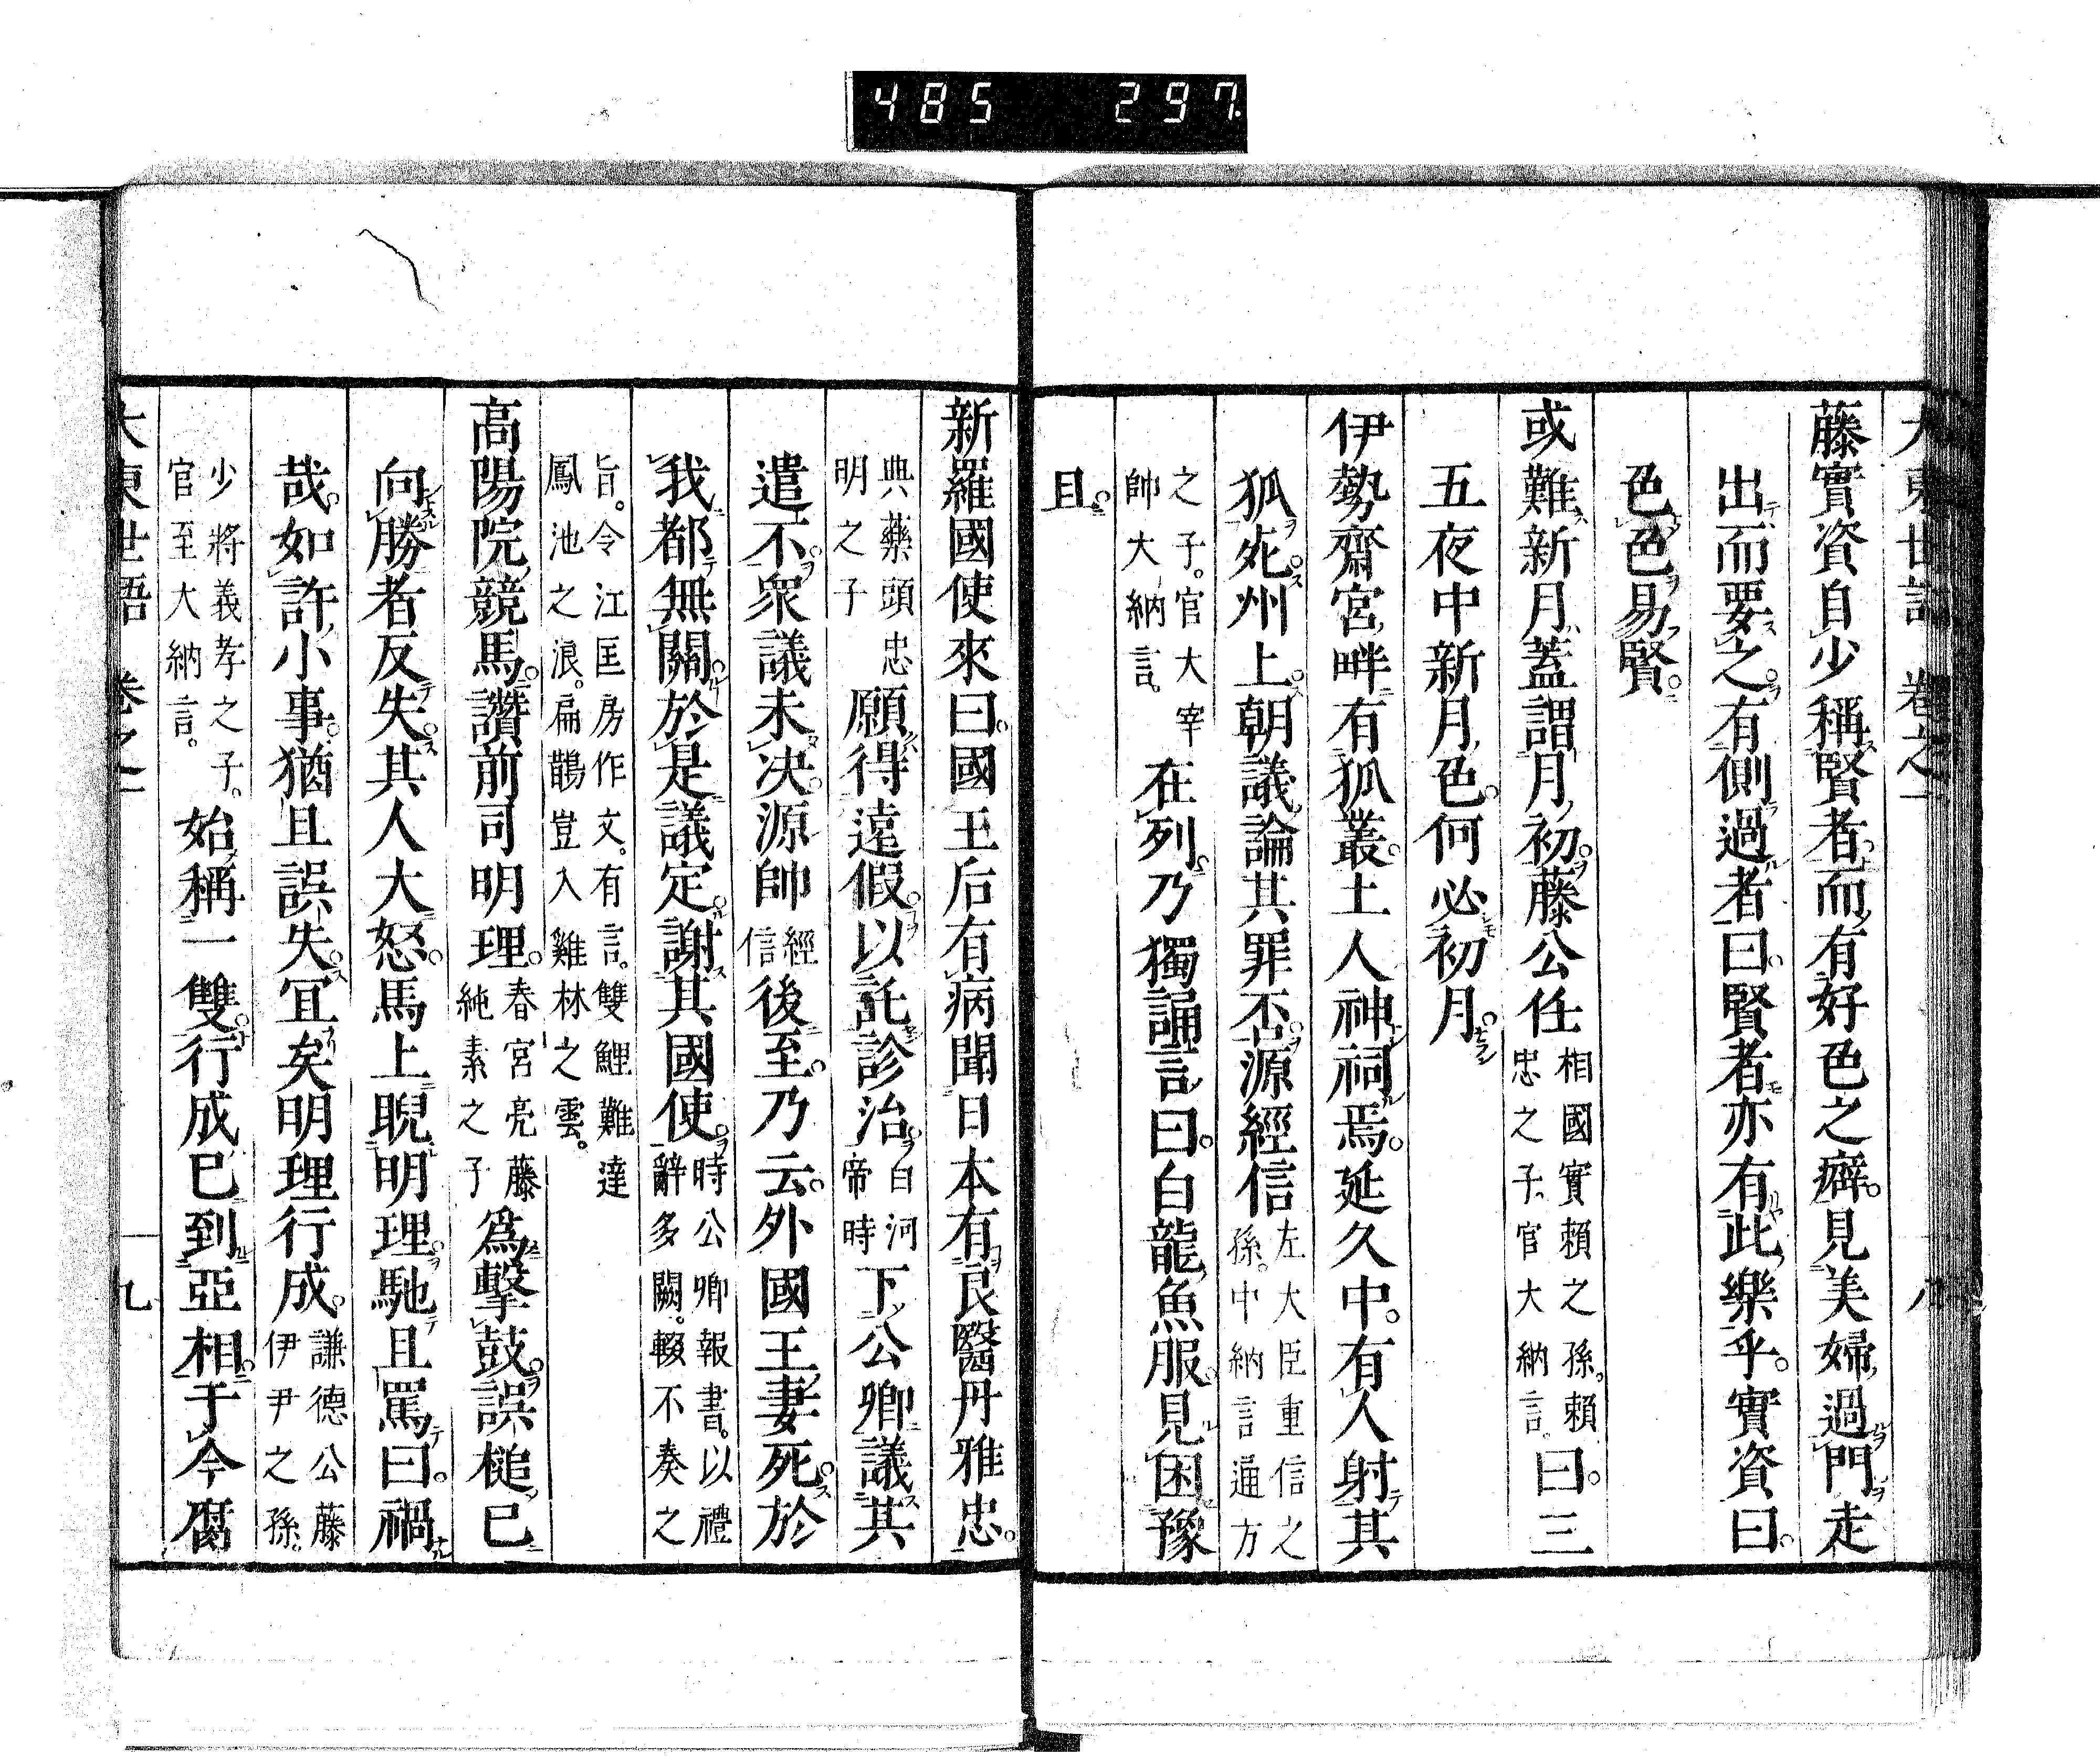 485 297.
大東世語 卷之一 八
藤實資自少稱賢者。而有好色之癖。見美婦過門走
出而要之。有側過者曰。賢者亦有此樂乎。實資曰。
色色易賢。
或難新月。蓋謂月初。藤公任相國實賴之孫。賴忠之子。官大納言。曰。三
五夜中新月色。何必初月。
伊勢齋宮畔有狐叢。土人神祠焉。延久中。有人射其
狐死。州上。朝議論其罪否。源經信左大臣重信之孫。中納言通方
之子。官大宰帥大納言。在列。乃獨誦言曰。白龍魚服。見困豫
且。
新羅國使來曰。國王后有病。聞日本有良醫丹雅忠。
典藥頭忠明之子願得遠假。以託診治。白河帝時下公卿議其
遣不。衆議未決。源帥經信後至。乃云。外國王妻死。於
我都無關。於是議定。謝其國使。時公卿報書。以禮辭多闕。輟不奏之
旨。令江匡房作文。有言。雙鯉難達鳳池之浪。扁鵲豈入雞林之雲。
高陽院競馬。讚前司明理。春宮亮藤純素之子爲擊鼓。誤槌已
向勝者反失。其人大怒。馬上睨明理。馳且罵曰。禍
哉。如許小事。猶且誤失。宜矣明理行成。謙德公藤伊尹之孫。
少將義孝之子。官至大納言。始稱一雙。行成已到亞相。于今腐
大東世語 卷之一 九